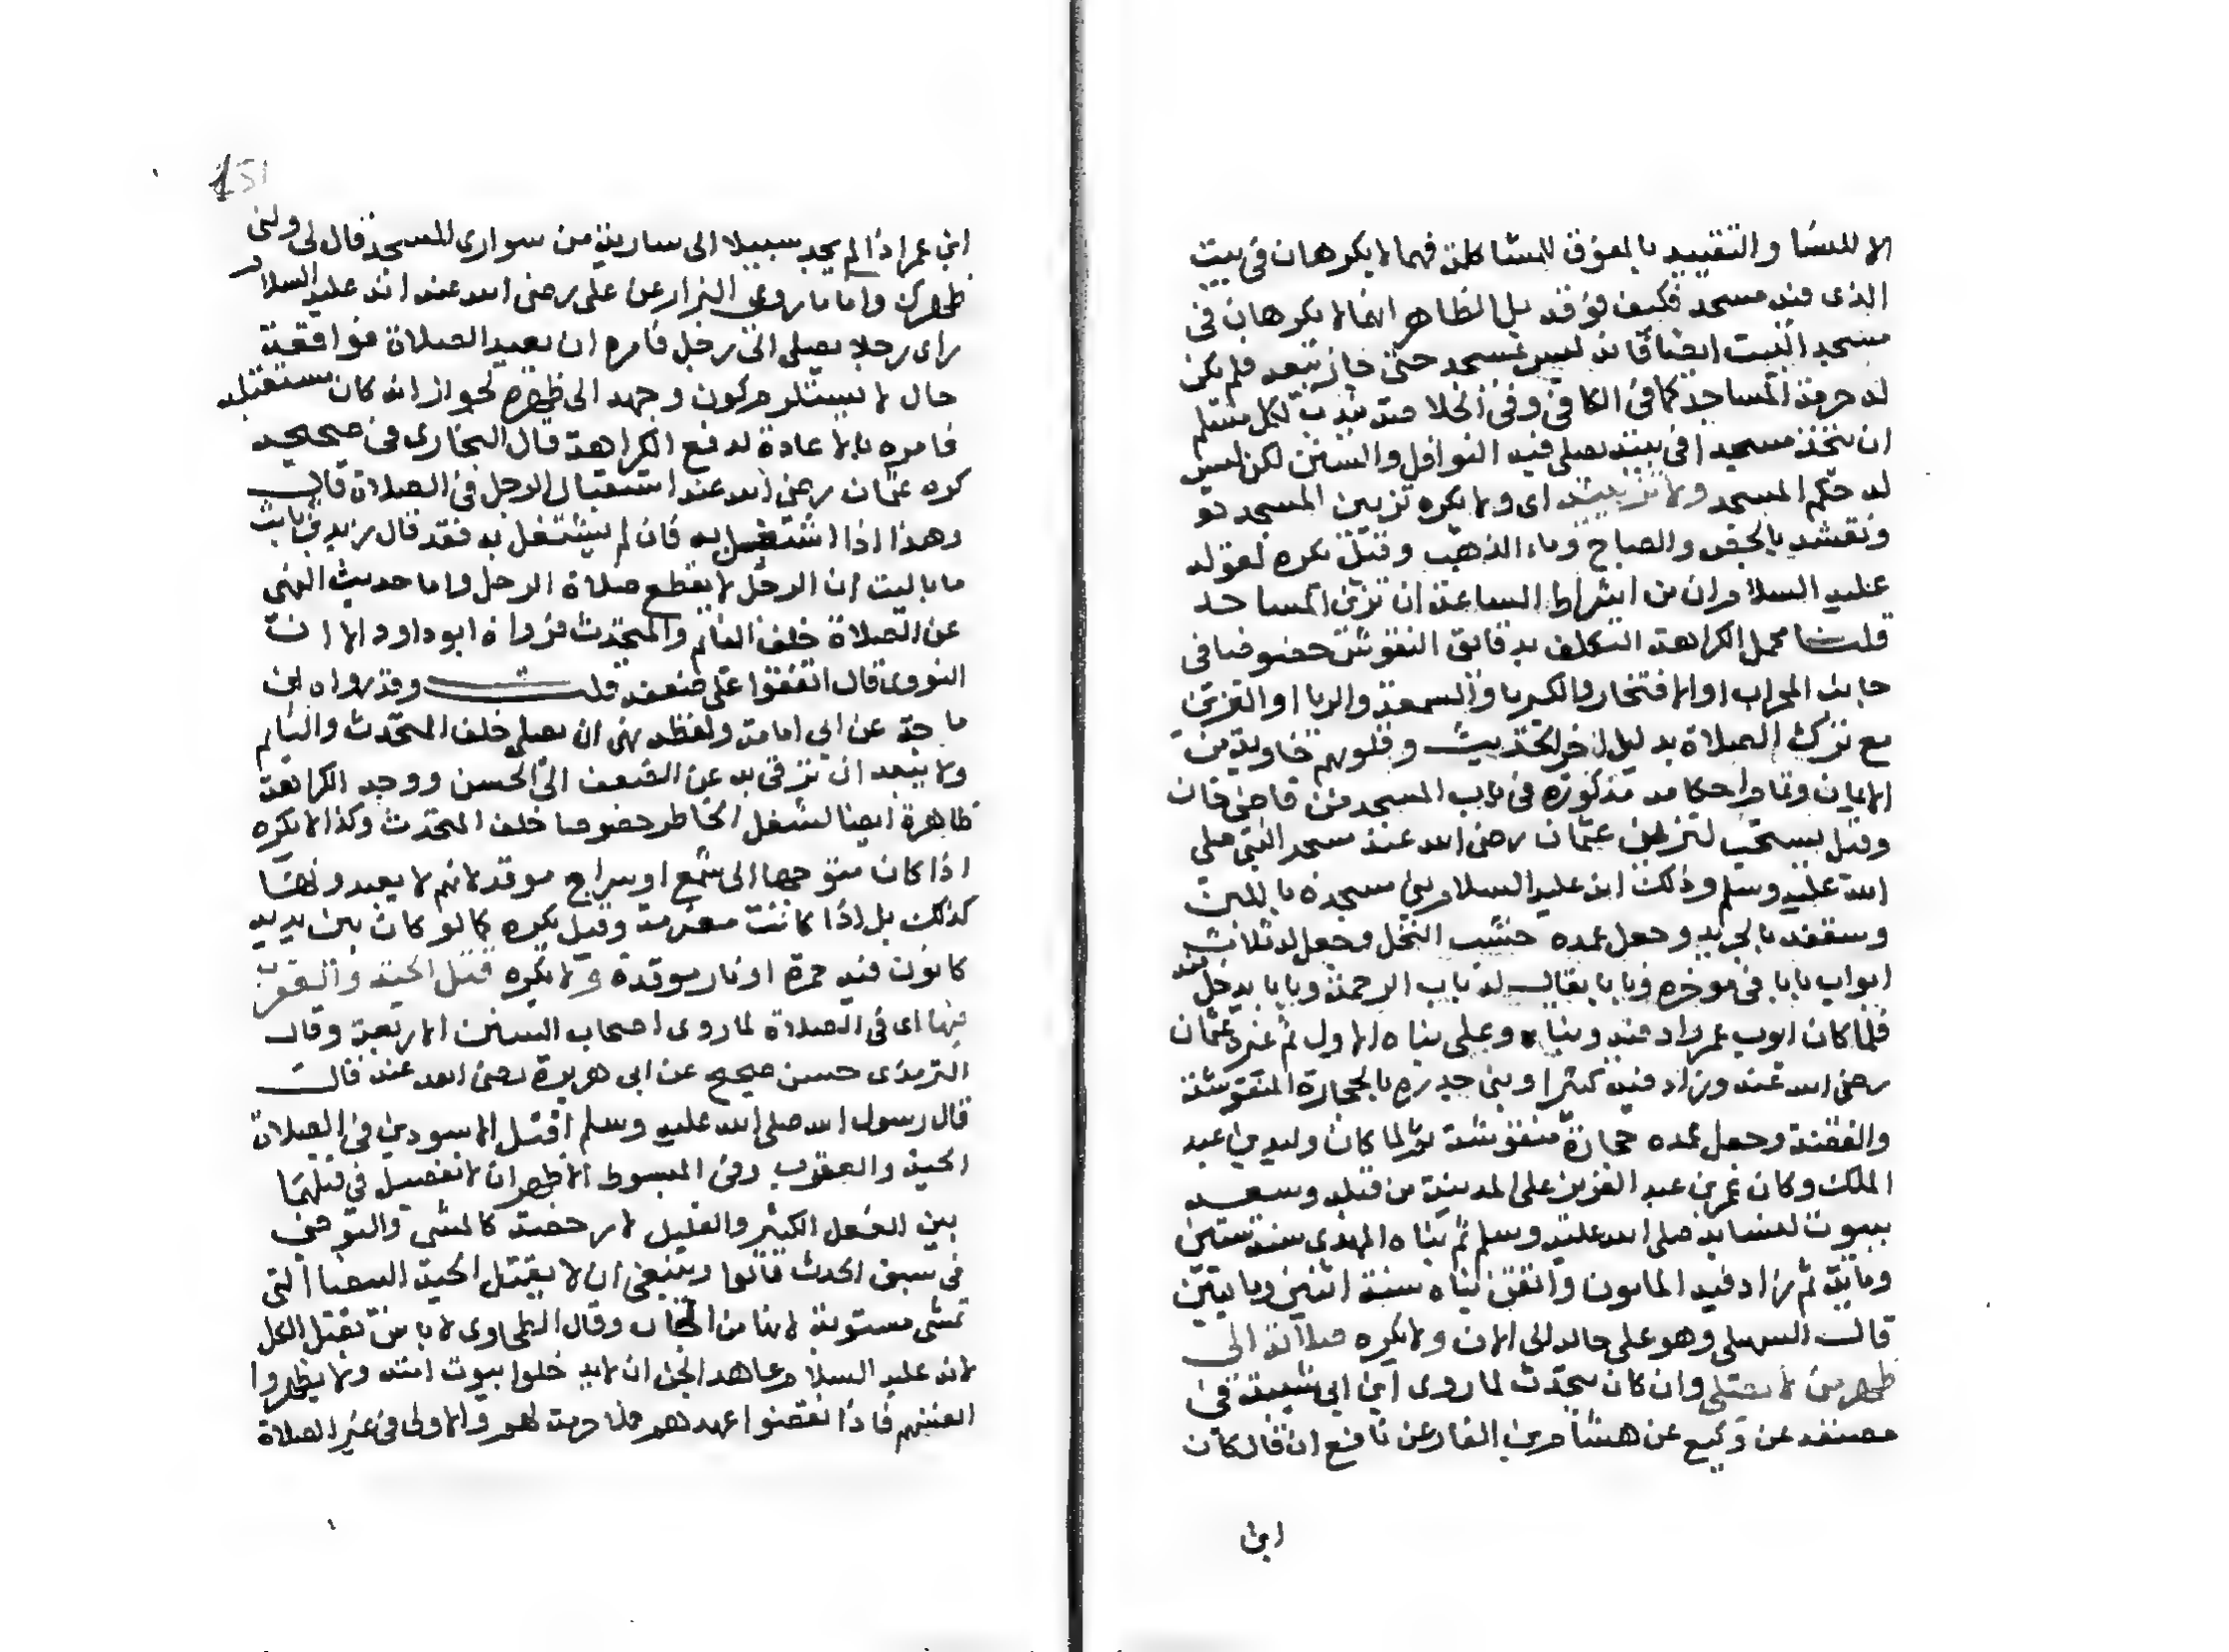 الا للنسا والتقييد بالفوق للمشاكلة فهما لا يكرهان في بيت
الذي فيه مسجد فكيف فوقه بل الظاهر انهما لا يكرهان في
مسجد البيت ايضا فانه ليس بمسجد حتى جاز بيعه فلم يكن
له حرمة المساجد كما في الكافي وفي الخلاصة يندب لكل مسلم
ان يتخذ مسجدا في بيته يصلي فيه النوافل والسنن لكن ليس
له حكم المسجد ولا تزيينه اي ولا يكره تزيين المسجد
ونقشه بالجص والصاج وماء الذهب وقيل يكره لقوله
عليه السلام ان من اشراط الساعة ان تزين المساجد
قلنا محمل الكراهة التكلف بدقائق النقوش خصوصا في
جانب المحراب او الافتخار والكبريا والسمعة والريا او التزيين
مع ترك الصلاة بدليل اخر الحديث وقلوبهم خاوية من
الايمان وتمام احكامه مذكورة في باب المسجد من قاضي خان
وقيل يستحب لتزيين عثمان رضي الله عنه مسجد النبي صلى
الله عليه وسلم وذلك انه عليه السلام بنى مسجده باللبن
وسقفه بالجريد وجعل عمده خشب النخل وجعل له ثلاث
ابواب بابا في موخره وبابا يقال له باب الرحمة وبابا يدخل منه
فلما كان ايوب عمر زاد فيه وبناه وعلى بناه الاول ثم غيره عثمان
رضي الله عنه وزاد فيه كثيرا وبنى جدره بالحجارة المنقوشة
والفضة وجعل عمده حجارة منقوشة ثم لما كان وليد بن عبد
الملك وكان عمر بن عبد العزيز على المدينة من قبله وسعه
ببيوت لنسايه صلى الله عليه وسلم ثم بناه المهدي سنة ستين
ومائة ثم زاد فيه المامون واتقن بناه سنة اثنين ومايتين
قال السهيلي وهو على حاله الى الان ولا يكره صلاته الى
ظهر من لا يصلي وان كان يتحدث لما روى ابن ابي شيبة في
مصنفه عن وكيع عن هشام بن الغاز عن نافع انه قال كان
ابن
151
ابن عمر اذا لم يجد سبيلا الى سارية من سواري المسجد قال لي ولني
ظهرك واما ما روى البزار عن علي رضي الله عنه انه عليه السلام
راى رجلا يصلي الى رجل فامره ان يعيد الصلاة فواقعة
حال لا يستلزم كون وجهه الى ظهره لجواز انه كان مستقبله
فامره بالاعادة لدفع الكراهة قال البخاري في صحيحه
كره عثمان رضي الله عنه استقبال الرجل في الصلاة قال
وهذا اذا اشتغل به فان لم يشتغل به فقد قال زيد بن ثابت
ما باليت ان الرجل لا يقطع صلاة الرجل واما حديث النهي
عن الصلاة خلف النائم والمتحدث فرواه ابوداود الا ان
النووي قال اتفقوا على ضعفه قلت وقد رواه ابن
ماجة عن ابي امامة ولفظه نهى ان يصلي خلف المتحدث والنائم
ولا يبعد ان يرقى به عن الضعف الى الحسن ووجه الكراهة
ظاهرة ايضا لشغل الخاطر خصوصا خلف المتحدث وكذا لا يكره
اذا كان متوجها الى شمع او سراج موقد لانهم لا يعبدونها
كذلك بل اذا كانت مضرمة وقيل يكره كما لو كان بين يديه
كانون فيه جمرة او نار موقدة ولا يكره قتل الحية والعقرب
فيها اي في الصلاة لما روى اصحاب السنن الاربعة وقال
الترمذي حسن صحيح عن ابي هريرة رضي الله عنه قال
قال رسول الله صلى الله عليه وسلم اقتل الاسودين في الصلاة
الحية والعقرب وفي المبسوط الاظهر ان لا تفصيل في قتلهما
بين الفعل الكثير والقليل لانه رخصة كالمشي والتوضي
في سبق الحدث قالوا وينبغي ان لا يقتل الحية البيضا التي
تمشي مستوية لانها من الجان وقال الطحاوي لا باس بقتل الكل
لانه عليه السلام عاهد الجن ان لا يدخلوا بيوت امته ولا يظهروا
انفسهم فاذا نقضوا عهدهم فلا حرمة لهم والاولى في غير الصلاة